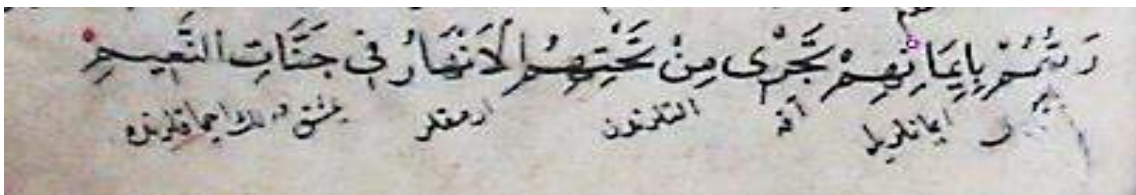 رَبُّهُمْ بِاِيمَانِهِمْ تَجْرِى مِنْ تَحْتِهِمُ الْاَنْهَارُ فِى جَنَّاتِ النَّعِيمِ
ایمانلریله آقه التلرندن ارمقلر